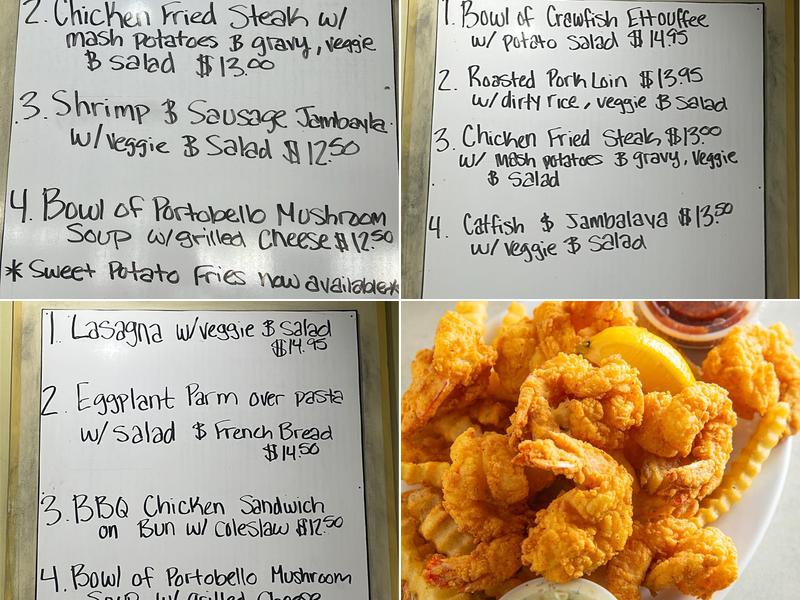 2. Chicken Fried Steak w/
mash potatoes & gravy, veggie
& Salad $13.00
3. Shrimp & Sausage Jambayla
w/veggie & Salad $12.50
4. Bowl of Portobello Mushroom
Soup w/grilled Cheese $12.50
* Sweet Potato Fries now available*
1. Bowl of Crawfish Ettouffee
w/ potato Salad $14.95
2. Roasted Pork Loin $13.95
w/dirty rice, veggie & Salad
3. Chicken Fried Steak $13.00
w/ mash potatoes & gravy, veggie
& Salad
4. Catfish & Jambalaya $13.50
w/ veggie & Salad
1. Lasagna w/veggie & Salad
$14.95
2. Eggplant Parm over pasta
w/ Salad & French Bread
$14.50
3. BBQ Chicken Sandwich
on Bun w/ Coleslaw $12.50
4. Bowl of Portobello Mushroom
Soup w/ grilled Cheese